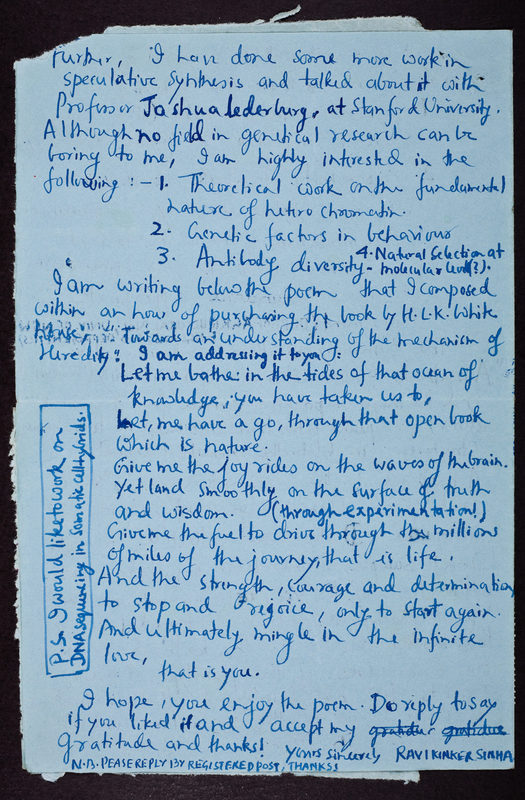 Further, I have done some more work in
speculative synthesis and talked about it with
Professor Joshua Lederburg, at Stanford University.
Although no field in genetical research can be
boring to me, I am highly interested in the
following :- 1. Theoretical work on the fundamental
nature of hetro chromatin.
2. Genetic factors in behaviour
3. Antibody diversity - 4. Natural Selection at
molecular level(?).
I am writing below the poem that I composed
within an hour of purchasing the book by H.L.K. White
House, Towards an understanding of the mechanism of
Heredity: I am addressing it to you:
Let me bathe in the tides of that ocean of
knowledge, you have taken us to,
Let, me have a go, through that open book
which is nature.
Give me the joy rides on the waves of the brain.
Yet land smoothly on the surface of truth
and wisdom. (through experimentation!)
Give me the fuel to drive through the millions
of miles of the journey, that is life.
And the strength, courage and determination
to stop and rejoice, only to start again.
And ultimately mingle in the infinite
love,
that is you.
P.S. I would like to work on
DNA sequencing in Somatic cell hybrids.
I hope, you enjoy the poem. Do reply to say
if you liked it and accept my
Gratitude and thanks! Yours sincerely RAVI KINKER SINHA
N.B. PEASE REPLY BY REGISTERED POST, THANKS!